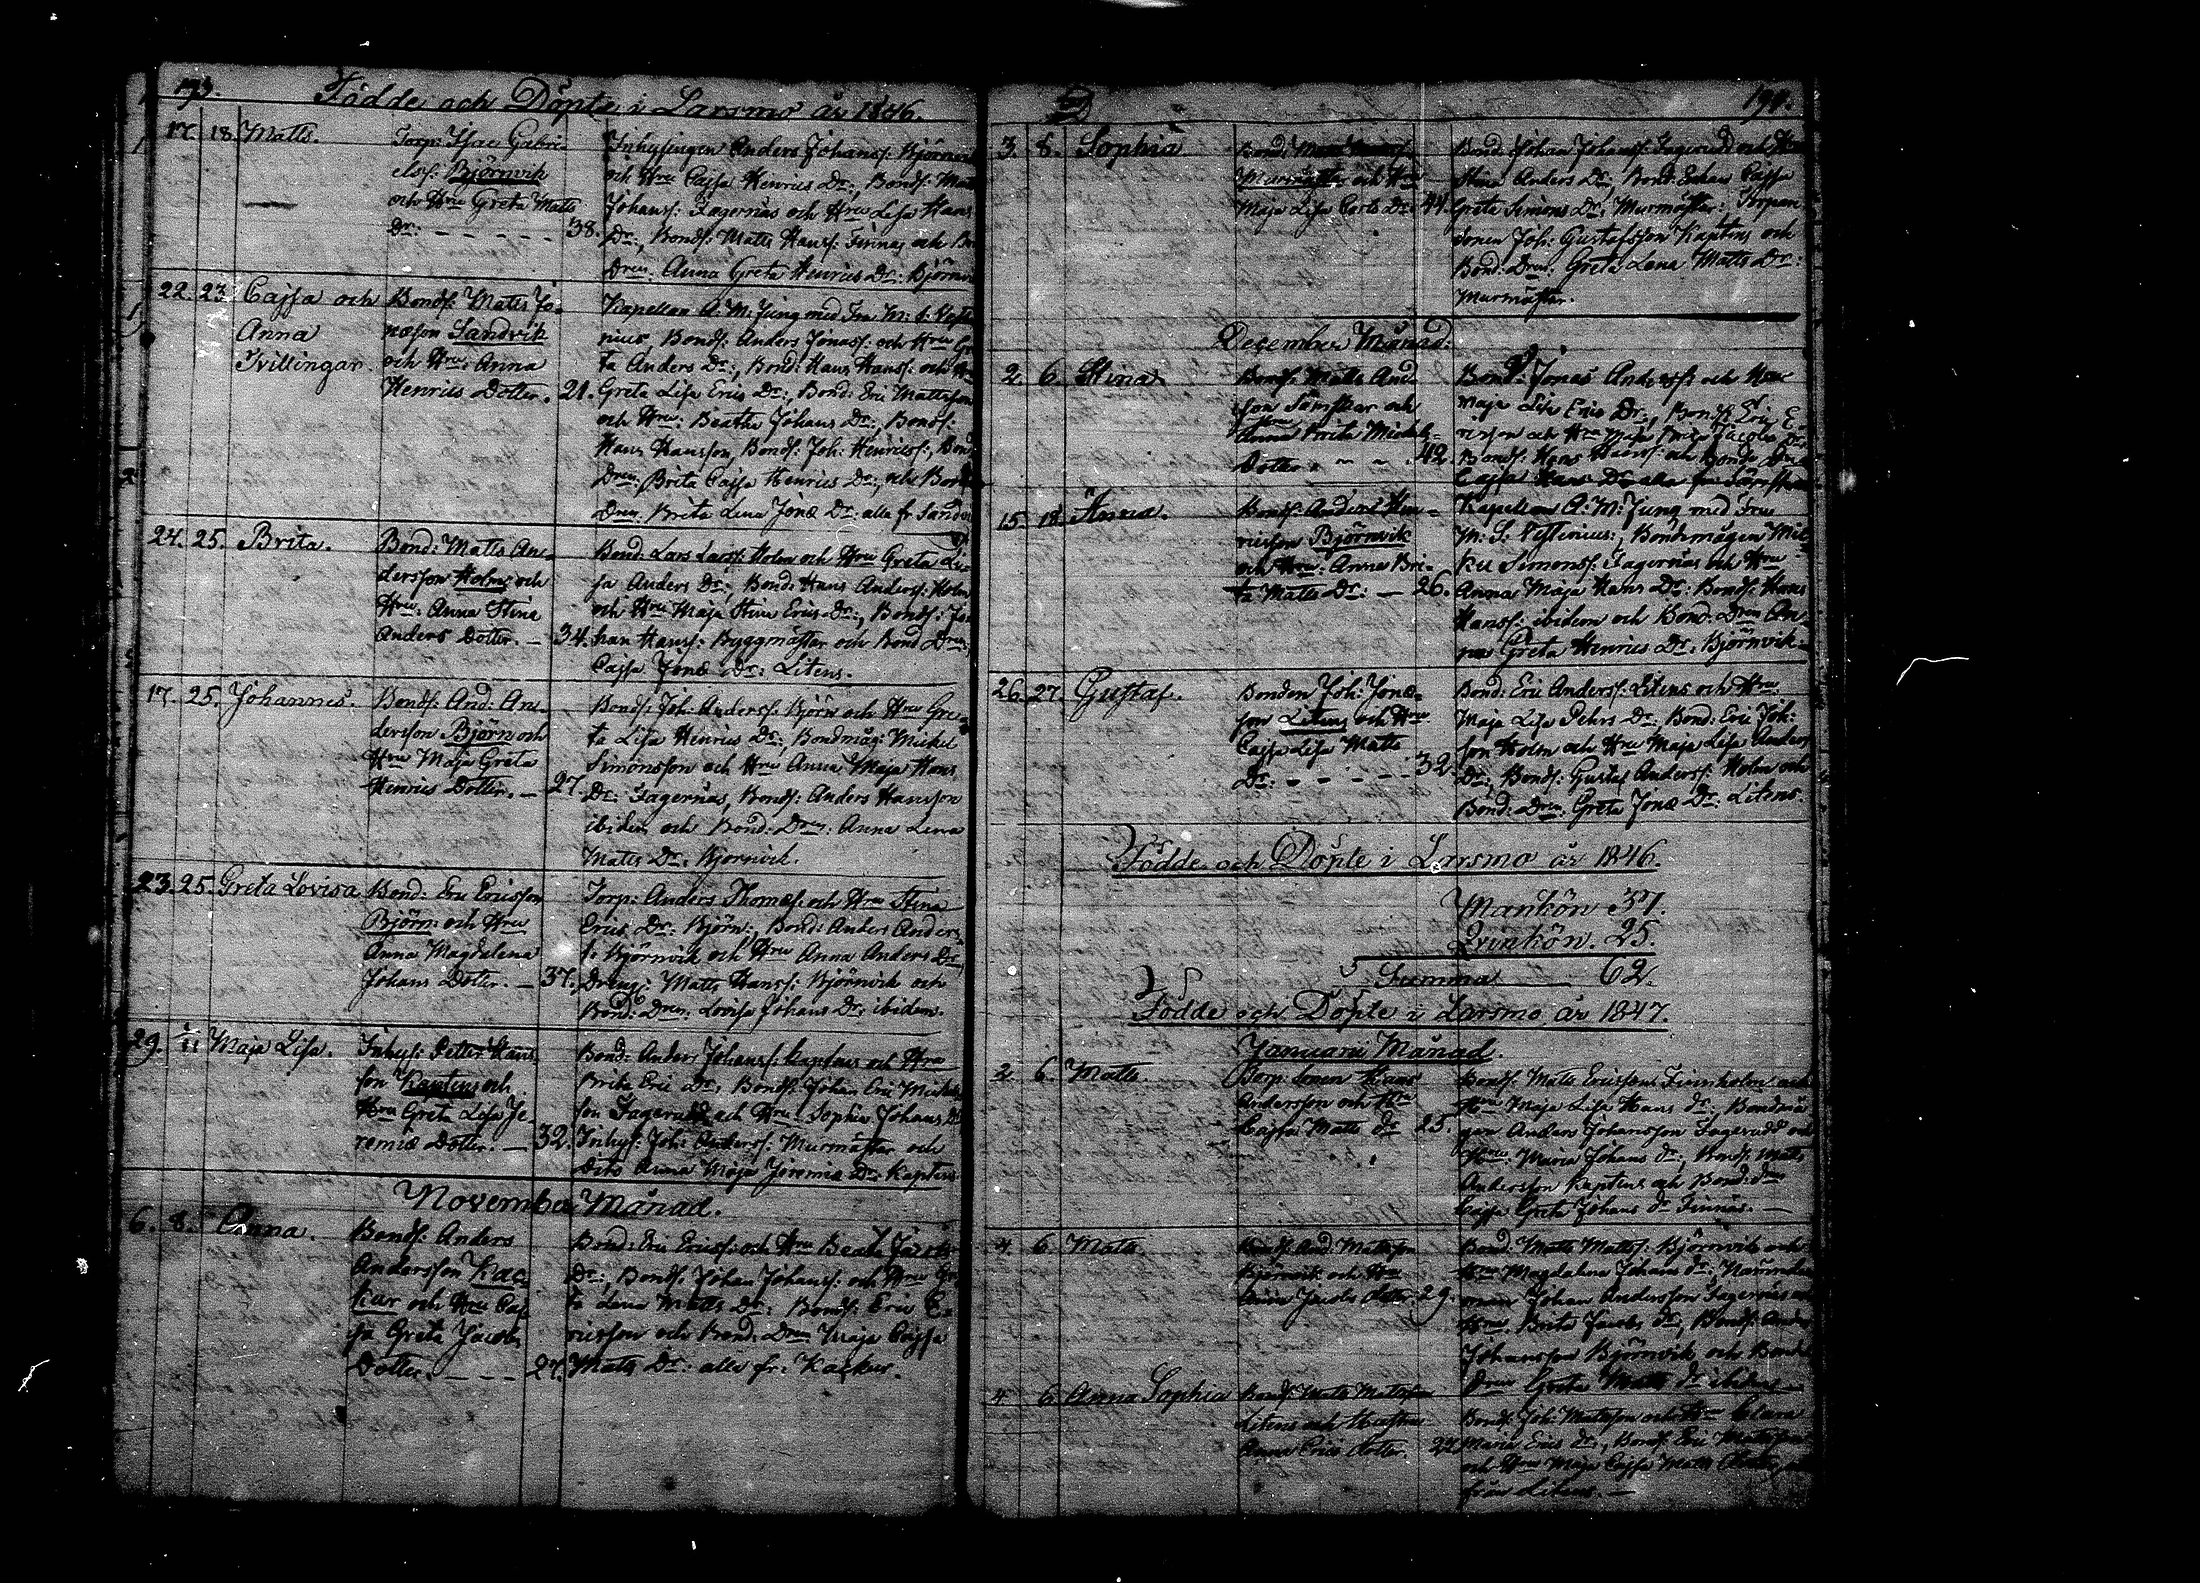 193.
Födde och Döpte i Larsmo år 1846.
17. 18. Matts.
Torp: Isac Gabri-
elss: Björnvik
och Hru Greta Matts
Dr: - - - - - 38.
Inhysingen Anders Johanss: Björnvik
och Hru Cajsa Henrics Dr:, Bonds: Matts
Johanss: Fagernäs och Hru Lisa Hans
Dr:, Bonds: Matts Hanss: Finnäs och
Dren: Anna Greta Henrics Dr: Björnvik
22. 23. Cajsa och
Anna
Tvillingar.
Bonds: Matts Jo-
næson Sandvik
och Hru: Anna
Henrics Dotter. 21.
Kapellan A: M: Jung med Fru M: S:
nius, Bonds: Anders Jonass: och Hru
ta Anders Dr:, Bond: Hans Hanss: och
Greta Lisa Erics Dr:, Bond: Eric Mattsson
och Hru: Beatha Johans Dr:, Bonds:
Hans Hansson, Bonds: Joh: Henricss:, Bond
Dren: Brita Cajsa Henrics Dr:, och Bond
Dren. Brita Lena Jonæ Dr: alla fr Sandvik
24. 25. Brita.
Bond: Matts An-
dersson Holm och
Hru: Anna Stina
Anders Dotter. — 34.
Bond: Lars Larss: Holm och Hru Greta Li-
sa Anders Dr:, Bond: Hans Anderss: Holm
och Hru Maja Stina Erics Dr:, Bonds: Jo-
han Hanss: Byggmästar och Bond Dren:
Cajsa Jonæ Dr: Litens.
17. 25. Johannes.
Bonds: And: An-
dersson Björn och
Hru Maja Greta
Henrics Dotter. — 27.
Bonds: Joh: Anderss: Björn och Hru Gre-
ta Lisa Henrics Dr:, Bondmåg: Mickel
Simonsson och Hru Anna Maja Hans
Dr: Fagernäs, Bonds: Anders Hansson
ibidem och Bond: Dren: Anna Lena
Matts Dr: Björnvik.
23. 25. Greta Lovisa
Bond: Eric Ericsson
Björn och Hru
Anna Magdalena
Johans Dotter. — 37.
Torp: Anders Thomæs: och Hru Stina
Erics Dr: Björn:, Bond: Anders Anders-
s: Björnvik och Hru Anna Anders Dr
Dreng: Matts Hanss: Björnvik och
Bond: Dren: Lovisa Johans Dr: ibidem.
29. 1/11 Maja Lisa.
Inhys: Petter Hans
son Kaptens och
Hru Greta Lisa Je
remiæ Dotter. — 32.
Bond: Anders Johanss: Kaptens och Hru
Brita Eric Dr:, Bonds: Johan Eric Mickels
son Fagerudd och Hru Sophia Johans Dr
Inhys: Joh: Anderss: Murmästar och
Dito Anna Maja Jeremiæ Dr: Kaptens
November Månad.
6. 8. Anna.
Bonds: Anders
Andersson Kac
kar och Hru Caj
sa Greta Jacobs
Dotter. - - - 27.
Bond: Eric Ericss: och Hru Beata Jacobs
Dr:, Bonds: Johan Johanss: och Hru Gre
ta Lena Matts Dr:, Bonds: Eric E-
ricsson och Bond: Dren Maja Cajsa
Matts Dr: alla fr: Kackur.
194.
3. 8. Sophia
Bonds:
Murmästar och Hru
Maja Lisa Carls Dr: 44.
Bond: Johan Johanss: Fagerudd och Hru
Stina Anders Dr:, Bond: Enkan Cajsa
Greta Simons Dr: Murmästar: Torpare
sonen Joh: Gustafsson Kaptens och
Bond: Dren: Greta Lena Matts Dr:
Murmästar.
December Månad.
2. 6. Stina
Bonds: Matts And
son Särsskar och
Hru
Anna Brita Mickels
Dotter. - - - 42.
Bond: Jonas Anderss: och Hru
Maja Lisa Erics Dr:, Bonds: Eric E
ricsson och Hru Maja Brita Jacobs Dr
Bonds: Hans Hanss: och Bonds Dren
Cajsa Hans Dr alla fr:
15. 18. Anna.
Bonds: Anders Hen-
ricsson Björnvik
och Hru: Anna Bri-
ta Matts Dr: — 26.
Kapellan A: M: Jung med Fru
M: S: Vestenius:, Bondemågen Mic-
kel Simonss: Fagernäs och Hru
Anna Maja Hans Dr: Bonds: Hans
Hanss: ibidem och Bond: Dren An-
na Greta Henrics Dr: Björnvik.
26. 27. Gustaf.
Bonden Joh: Jonæ-
son Litens och Hru
Cajsa Lisa Matts
Dr: - - - - - 32.
Bond: Eric Anderss: Litens och Hru
Maja Lisa Pehrs Dr: Bond: Eric Joh:
son Holm och Hru Maja Lisa Anders
Dr:, Bonds: Gustaf Anderss: Holm och
Bond: Dren: Greta Jonæ Dr: Litens.
Födde och Döpte i Larsmo år 1846.
Mankön 37.
Qvinkön. 25.
Summa — 62.
Födde och Döpte i Larsmo år 1847.
Januarii Månad.
2. 6. Matts.
Torp: sonen Hans
Andersson och Hru
Cajsa Matts dr 25.
Bonds: Matts Ericsson Finnholm och
Hru Maja Lisa Hans dr, Bondemå
gen Anders Johansson Fagerudd och
Hru: Maria Johans dr:, Bonds: Matts
Andersson Kaptens och Bond: dren
Cajsa Greta Johans dr Finnäs. —
4. 6. Matts
Bonds: And: Mattsson
Björnvik och Hru
Jacobs dotter 29.
Bond: Matts Mattss: Björnvik och
Hru Magdalena Johans dr:, Nämnde
man Johan Andersson Fagernäs och
Hru: Brita Jacobs dr, Bonds: Anders
Johansson Björnvik, och Bonde
dren Greta Matts dr ibidem
4. 6. Anna Sophia
Bonds: Matts Mattsson
Litens och Hustru
Anna Erics dotter. 24
Bonds: Joh: Mattsson och Hru Clara
Maria Erics dr:, Bonds: Eric Mattsson
och Hru Maja Cajsa Matts dotter, alla
från Litens. —